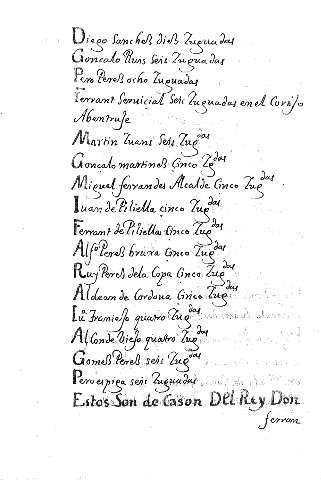 Diego Sanches dies Zuguadas
Goncalo Ruis seis Zuguadas
Pero Peres ocho Zuguadas
Ferrant Seruicial Seis Zuguadas en el Cortijo
Abentrufe
Martin Iuans Seis Zugdas
Goncalo martines Cinco Zgdas
Miguel ferrandes Alcalde Cinco Zugdas
Iuan de Piliella cinco Zugdas
Ferrant de Piliella Cinco Zugdas
Alfo Peres Cinco Zugdas
Ruy Peres dela Copa Cinco Zugdas
de Cordoua Cinco Zugdas
quatro Zugdas
Al Conde Viejo quatro Zugdas
Gomes Peres seis Zugdas
Pero espiga seis Zuguadas
Estos Son de Cason DEl Rey Don
ferran